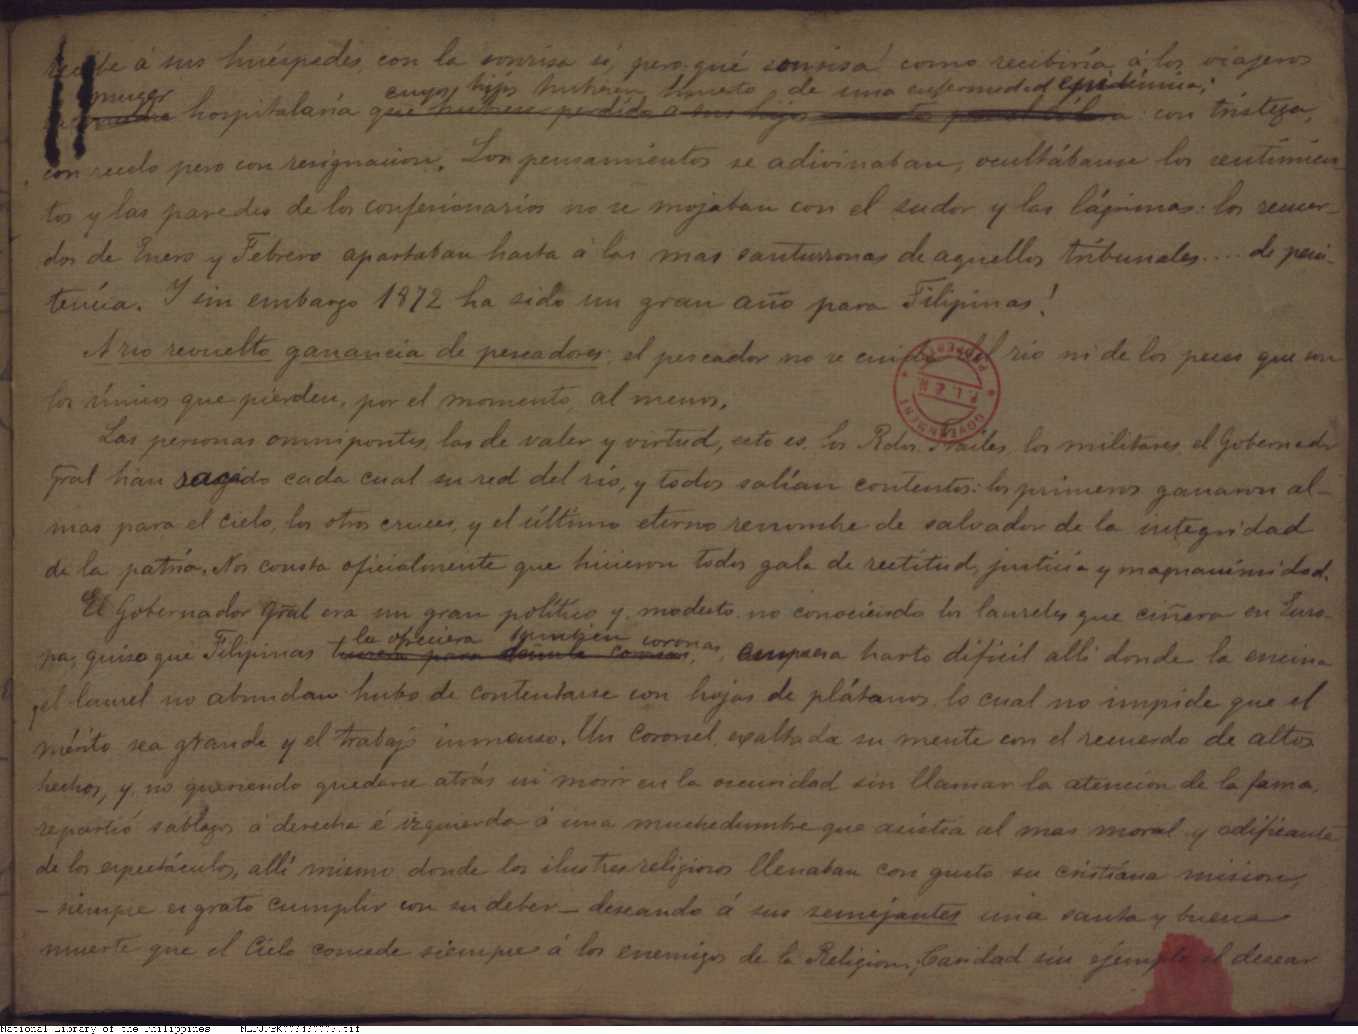 recibe á sus huéspedes con la sonrisa sí, pero ¡qué sonrisa! como recibiría á los viajeros
muger cuyos hijos hubieran muerto de una enfermedad epidémica;
hospitalaria que hubiese perdido a sus hijos con tristeza,
con recelo pero con resignacion. Los pensamientos se adivinaban, ocultábanse los sentimien-
tos y las paredes de los confesionarios no se mojaban con el sudor y las lágrimas: los recuer-
dos de Enero y Febrero apartaban hasta á las mas santurronas de aquellos tribunales.... de peni-
tencia. Y sin embargo 1872 ha sido un gran año para Filipinas!
A rio revuelto ganancia de pescadores: el pescador no se cuida del rio ni de los peces que son
los únicos que pierden, por el momento, al menos.
Las personas omnipontes, las de valer y virtud, esto es, los Rdos. Frailes, los militares, el Gobernador
Gral han cada cual su red del río, y todos salían contentos: los primeros ganaron al-
mas para el cielo, los otros cruces, y el último eterno renombre de salvador de la integridad
de la patria. Nos consta oficialmente que hicieron todos gala de rectitud, justicia y magnanimidad.
El Gobernador Gral era un gran político y modesto no conociendo los laureles que ciñera en Euro-
la ofreciera tambien coronas
pa, quiso que Filipinas empresa harto dificil allí donde la encina
y el laurel no abundan hubo de contentarse con hojas de plátanos lo cual no impide que el
mérito sea grande y el trabajo inmenso. Un Coronel, exaltada su mente con el recuerdo de altos
hechos, y no queriendo quedarse atrás ni morir en la oscuridad sin llamar la atencion de la fama,
repartió sablazos á derecha é izquierda á una muchedumbre que asistia al mas moral y edificante
de los espectáculos, allí mismo donde los ilustres religiosos llenaban con gusto su cristiana mision,
- siempre es grato cumplir con su deber - deseando á sus semejantes una santa y buena
muerte que el Cielo concede siempre á los enemigos de la Religion, Caridad sin ejemplo el desear
GOVERNMENT PROPERTY
P. L. & M.
National Library of the Philippines